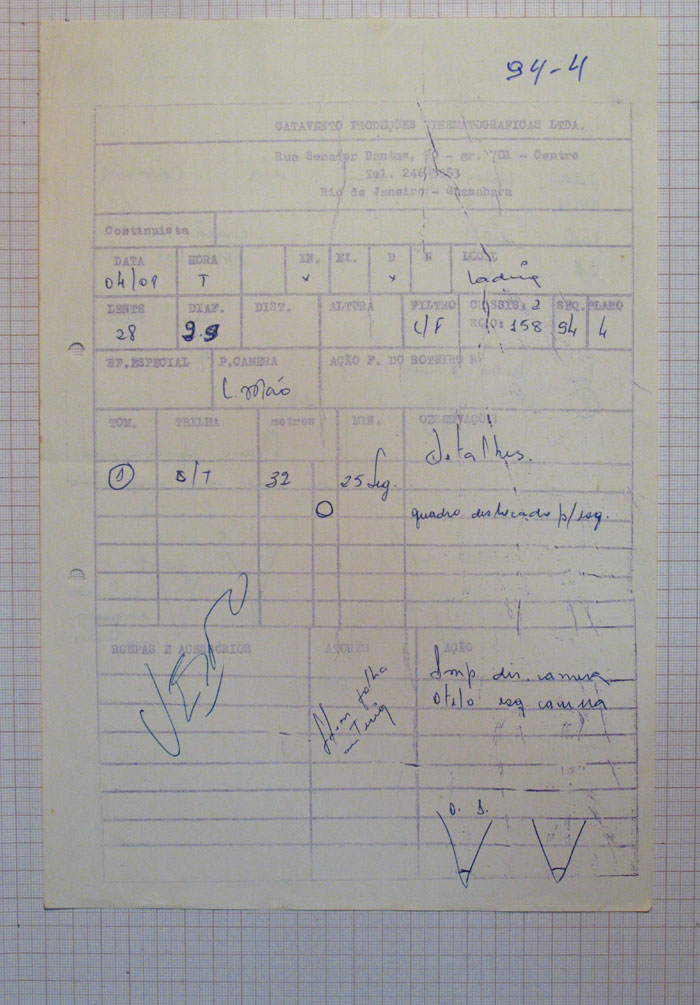 94-4
CATAVENTO PRODUÇÕES CINEMATOGRAFICAS LTDA.
Rua Senador Dantas, - gr. 701 - Centro
Tel.
Rio de Janeiro - Guanabara
Continuista
DATA HORA IN. EX. D N LOCAL
04/09 T x x
LENTE DIAF. DIST. ALTURA FILTRO CHASSIS: 2 SEQ. PLANO
28 C/F ROLO: 158 94 4
EF.ESPECIAL P.CAMERA AÇÃO P. DO ROTEIRO
mão
TOM. TRILHA metros MIN. OBSERVAÇÃO
Detalhes.
1 S/T 32 25 Seg.
O quadro deslocado p/esq.
ROUPAS E ACESSÓRIOS ATORES AÇÃO
dir. camera
Otelo esq camera
folha
O. J.